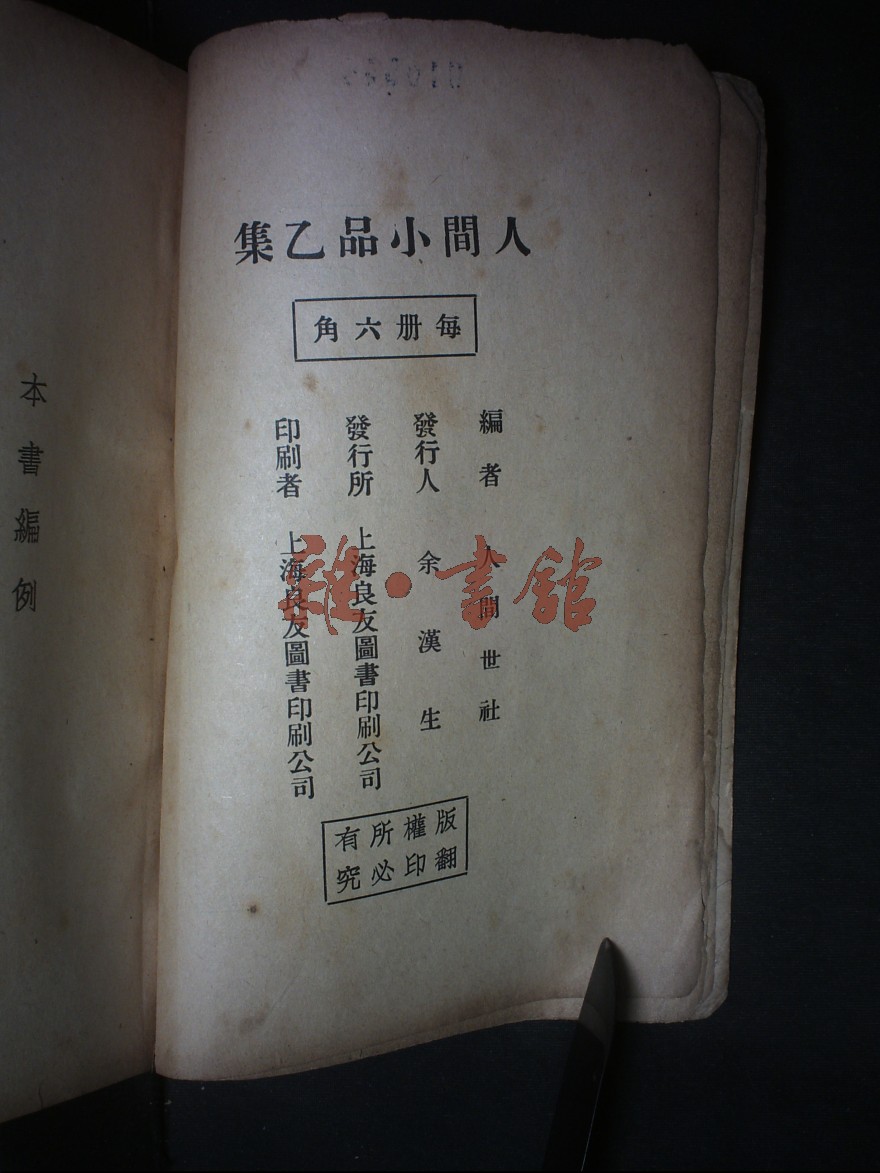 人間小品乙集
每册六角
編者 人間世社
發行人 余漢生
發行所 上海良友圖書印刷公司
印刷者 上海良友圖書印刷公司
版權所有
翻印必究
本書編例
雜·書館